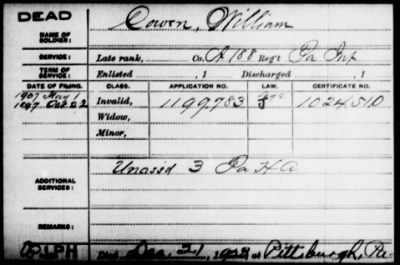 DEAD
Cowen, William
NAME OF SOLDIER:
SERVICE: Late rank, Co. A 188 Reg't Pa Inf
TERM OF SERVICE: Enlisted , 1 Discharged , 1
DATE OF FILING. CLASS. APPLICATION NO. LAW. CERTIFICATE NO.
1907 May 1
Oct 22 Invalid, 1199783 J 1024510
Widow,
Minor,
ADDITIONAL SERVICES: Unassd 3 Pa H A
REMARKS:
Dec. 21, at Pittsburgh, Pa